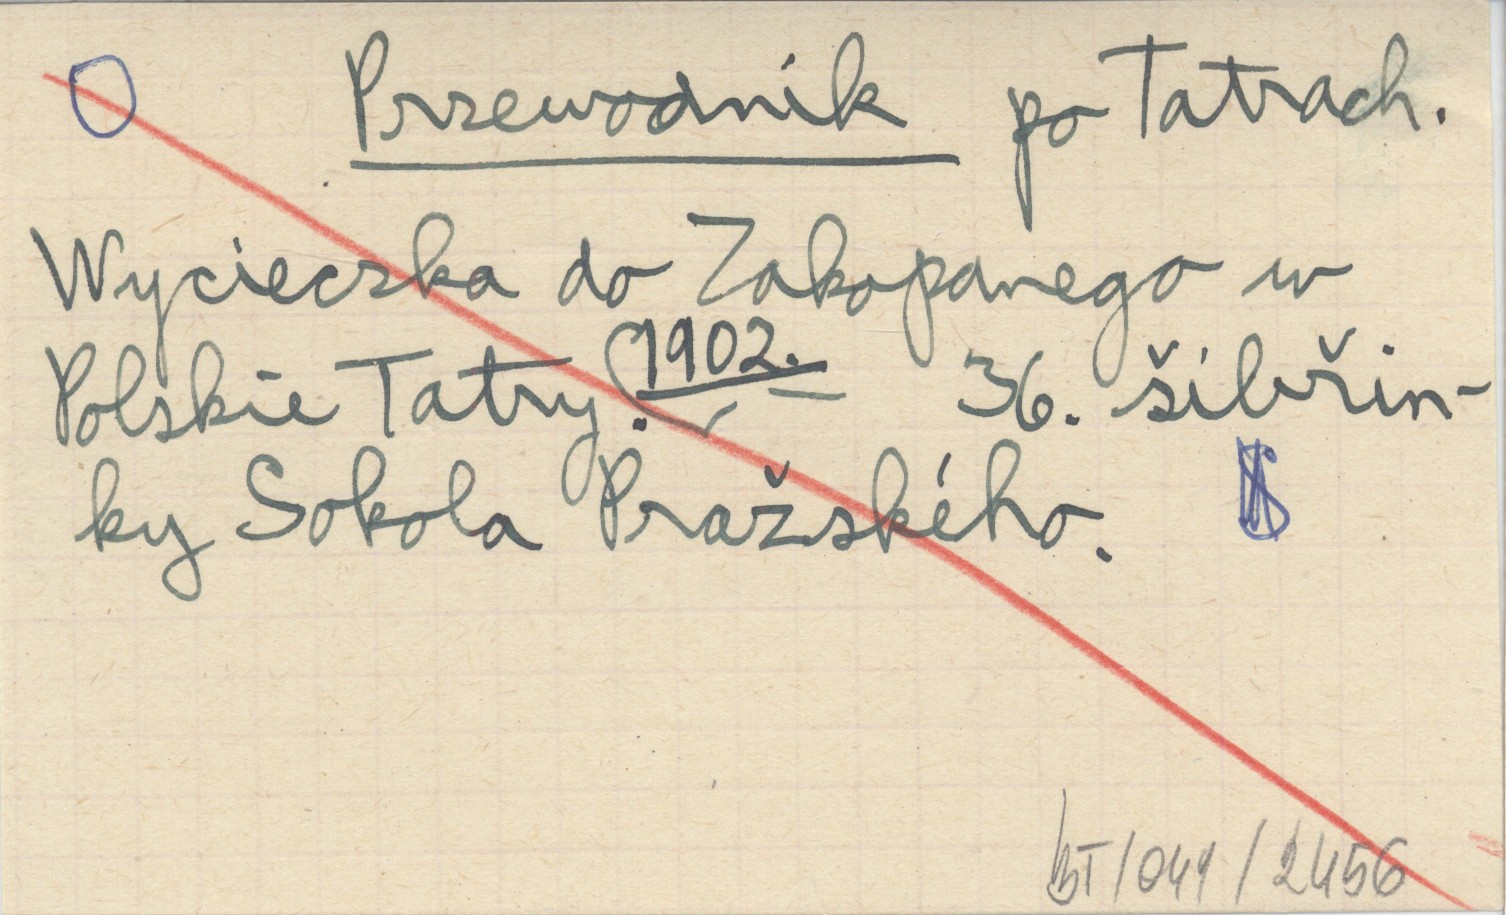 Przewodnik po Tatrach.
Wycieczka do Zakopanego w
Polskie Tatry. 1902. 36. šibřin-
ky Sokola Pražského.
BT/041/2456